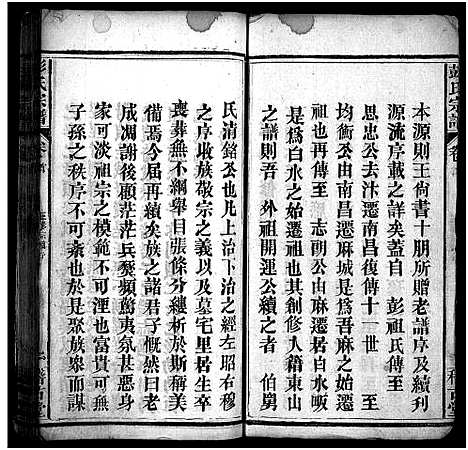 彭氏宗譜
本源則王尙書十朋所贈老譜序及續刋
源流序載之詳矣蓋自 彭祖氏傳至
思忠公去汴遷南昌復傳十一世
均衡公由南昌遷麻城是爲吾麻之始遷
祖也再傳至 志勛公由麻遷居白水畈
是爲白水之始遷祖也其創修人籍東山
之譜則吾 外祖開運公續之者 伯舅
氏清銘公也凡上治下治之經左昭右穆
之序收族敬宗之義以及墓宅里居生卒
喪葬無不綱舉目張條分縷析於斯稱美
備焉今屆再續矣族之諸君子慨然曰自
咸凋謝後顧茫茫兵燹頻驚夷氛甚惡身
家可淡祖宗之模範不可不存富貴可忘
子孫之秩序不可紊也於是聚族衆而謀
彭氏宗譜